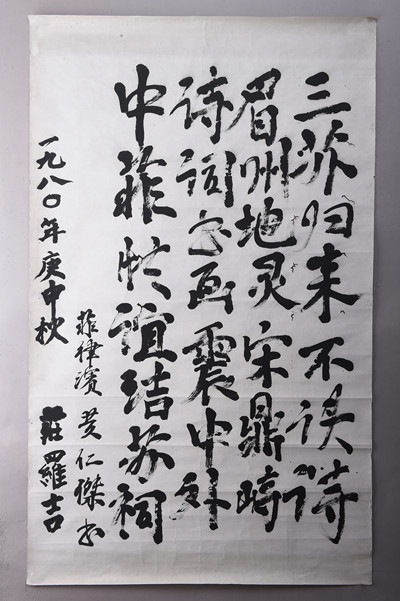 三苏归来不误
眉州地灵宋鼎崎
诗词画震中外
中菲谊结苏祠
一九八〇年庚申秋
菲律濱 黄仁傑书
莊羅吉